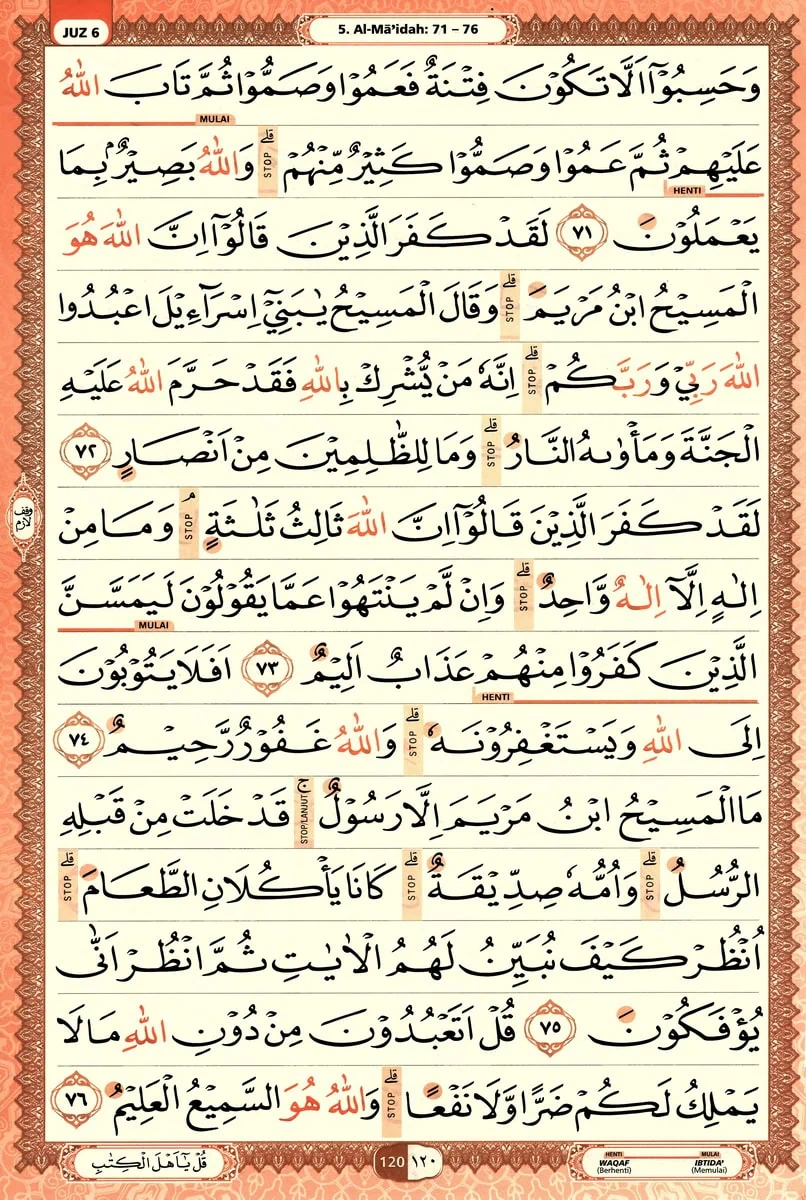 JUZ 6
5. Al-Mā'idah: 71 – 76
وَحَسِبُوْٓا اَلَّا تَكُوْنَ فِتْنَةٌ فَعَمُوْا وَصَمُّوْا ثُمَّ تَابَ اللّٰهُ
MULAI
عَلَيْهِمْ ثُمَّ عَمُوْا وَصَمُّوْا كَثِيْرٌ مِّنْهُمْ ۗ STOP وَاللّٰهُ بَصِيْرٌۢ بِمَا
HENTI
يَعْمَلُوْنَ ٧١ لَقَدْ كَفَرَ الَّذِيْنَ قَالُوْٓا اِنَّ اللّٰهَ هُوَ
الْمَسِيْحُ ابْنُ مَرْيَمَ ۗ STOP وَقَالَ الْمَسِيْحُ يٰبَنِيْٓ اِسْرَاۤءِيْلَ اعْبُدُوا
اللّٰهَ رَبِّيْ وَرَبَّكُمْ ۗ STOP اِنَّهٗ مَنْ يُّشْرِكْ بِاللّٰهِ فَقَدْ حَرَّمَ اللّٰهُ عَلَيْهِ
الْجَنَّةَ وَمَأْوٰىهُ النَّارُ ۗ STOP وَمَا لِلظّٰلِمِيْنَ مِنْ اَنْصَارٍ ٧٢
لَقَدْ كَفَرَ الَّذِيْنَ قَالُوْٓا اِنَّ اللّٰهَ ثَالِثُ ثَلٰثَةٍ ۘ STOP وَمَا مِنْ
وقف لازم
اِلٰهٍ اِلَّآ اِلٰهٌ وَّاحِدٌ ۗ STOP وَاِنْ لَّمْ يَنْتَهُوْا عَمَّا يَقُوْلُوْنَ لَيَمَسَّنَّ
MULAI
الَّذِيْنَ كَفَرُوْا مِنْهُمْ عَذَابٌ اَلِيْمٌ ٧٣ اَفَلَا يَتُوْبُوْنَ
HENTI
اِلَى اللّٰهِ وَيَسْتَغْفِرُوْنَهٗ ۗ STOP وَاللّٰهُ غَفُوْرٌ رَّحِيْمٌ ٧٤
مَا الْمَسِيْحُ ابْنُ مَرْيَمَ اِلَّا رَسُوْلٌ ۚ STOP/LANJUT قَدْ خَلَتْ مِنْ قَبْلِهِ
الرُّسُلُ ۗ STOP وَاُمُّهٗ صِدِّيْقَةٌ ۗ STOP كَانَا يَأْكُلَانِ الطَّعَامَ ۗ STOP
اُنْظُرْ كَيْفَ نُبَيِّنُ لَهُمُ الْاٰيٰتِ ثُمَّ انْظُرْ اَنّٰى
يُؤْفَكُوْنَ ٧٥ قُلْ اَتَعْبُدُوْنَ مِنْ دُوْنِ اللّٰهِ مَا لَا
يَمْلِكُ لَكُمْ ضَرًّا وَّلَا نَفْعًا ۗ STOP وَاللّٰهُ هُوَ السَّمِيْعُ الْعَلِيْمُ ٧٦
قُلْ يٰٓاَهْلَ الْكِتٰبِ
120 ١٢٠
HENTI MULAI
WAQAF IBTIDA'
(Berhenti) (Memulai)